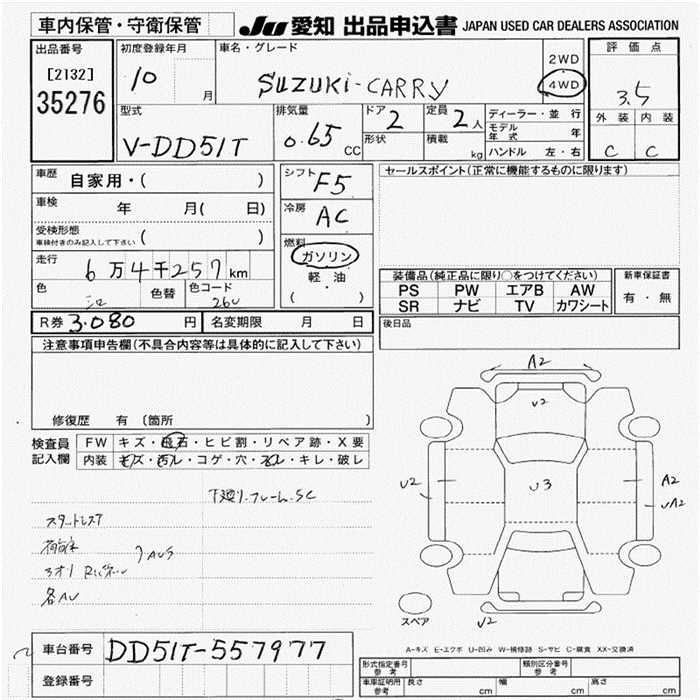 車内保管・守衛保管
JU 愛知 出品申込書 JAPAN USED CAR DEALERS ASSOCIATION
出品番号
[2132]
35276
初度登録年月
10 月
車名・グレード
SUZUKI-CARRY
2WD
4WD
評価点
3.5
外装 内装
C C
型式
V-DD51T
排気量
0.65 CC
ドア
2
形状
定員
2人
積載 kg
ディーラー・並行
モデル年式 年
ハンドル 左・右
車歴 自家用・( )
車検 年 月( 日)
受検形態
車検付きのみ記入して下さい ( )
走行 6万4千257km
色 色替 色コード
26U
シフト F5
冷房 AC
燃料
ガソリン
軽・油
( )
セールスポイント(正常に機能するものに限ります)
装備品(純正品に限り○をつけてください)
PS PW エアB AW
SR ナビ TV カワシート
新車保証書
有・無
R券 3.080 円 名変期限 月 日
後日品
注意事項申告欄(不具合内容等は具体的に記入して下さい)
修復歴 有 (箇所 )
検査員記入欄
FW キズ・飛石・ヒビ割・リペア跡・X要
内装 キズ・汚レ・コゲ・穴・スレ・キレ・破レ
下廻り.フレーム.SC
各AU
A2
U2
U2
U3
A2
UA2
U2
スペア
車台番号 DD51T-557977
登録番号
A-キズ E-エクボ U-凹み W-補修跡 S-サビ C-腐食 XX-交換済
形式指定番号 参考
類別区分番号 参考
車庫証明用 参考 長さ cm 幅 cm 高さ cm